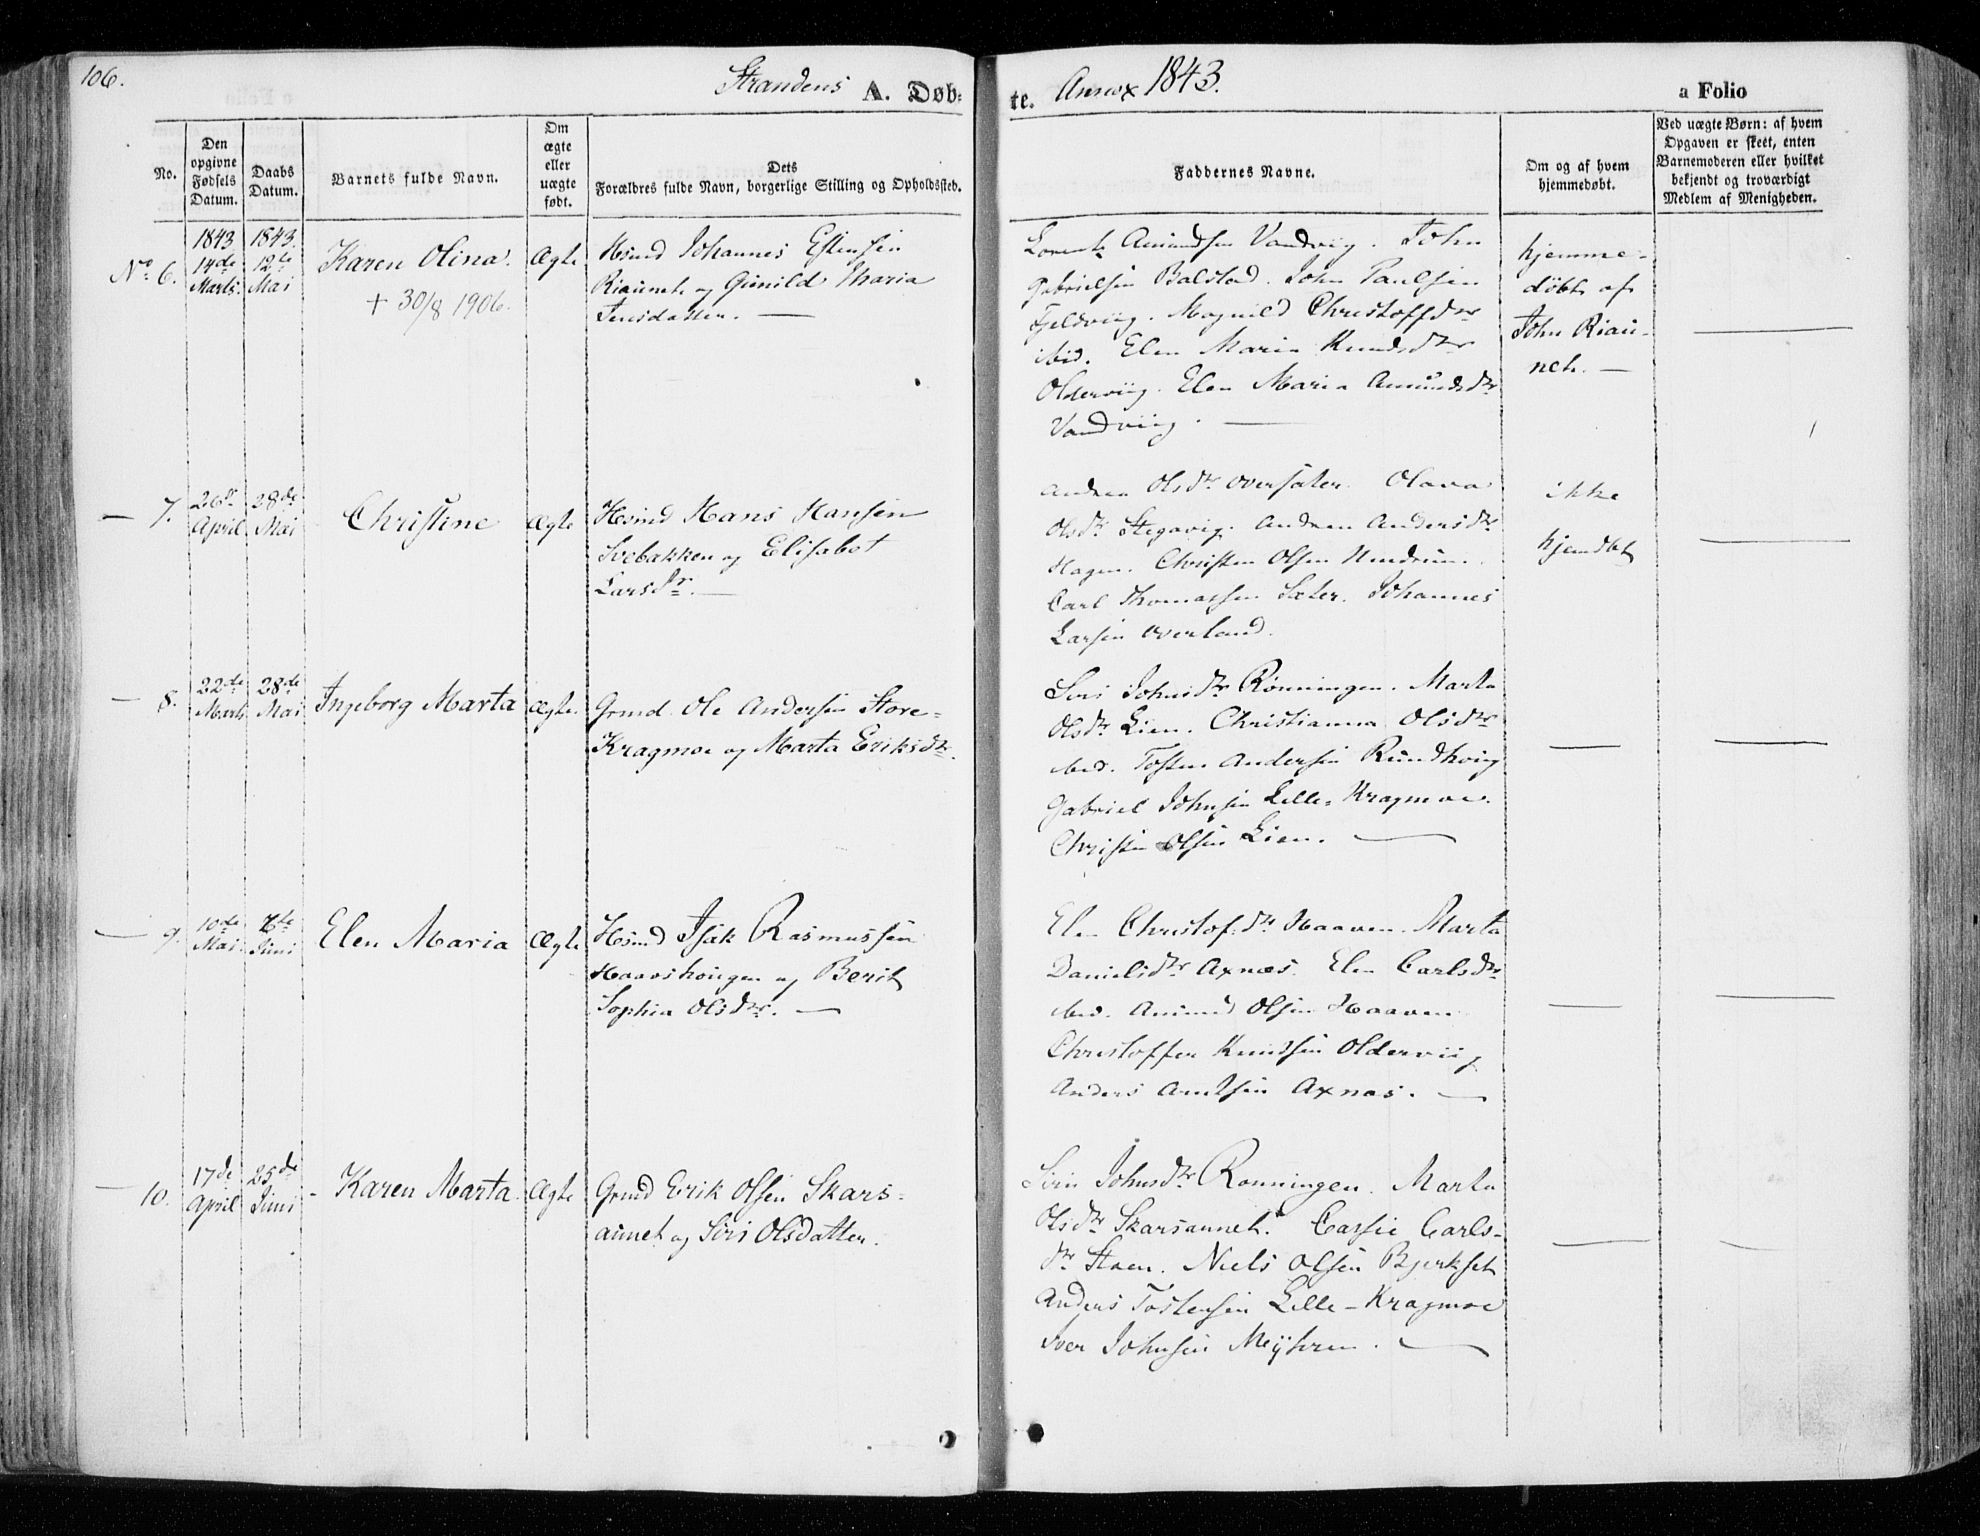 106.
Strandens A. Døb-
te. Annex 1843.
a Folio
No.
Den
opgivne
Fødsels
Datum.
Daabs
Datum.
Barnets fulde Navn.
Om
ægte
eller
uægte
født.
Dets
Forældres fulde Navn, borgerlige Stilling og Opholdssted.
Faddernes Navne.
Om og af hvem
hjemmedøbt.
Ved uægte Børn: af hvem
Opgaven er skeet, enten
Barnemoderen eller hvilket
bekjendt og troværdigt
Medlem af Menigheden.
No 6.
1843
14de
Marts.
1843.
12te
Mai
Karen Olina.
+ 30/8 1906.
Ægte
Hsmd Johannes Estensen
Riaunet og Gunild Maria
Jensdatter. —
Lorents Amundsen Vandvig. John
Gabrielsen Balstad. John Paulsen
Fjeldviig. Magnild Christoffdtr
ibid. Elen Maria Knudsdtr
Olderviig. Elen Maria Amundsdtr
Vandviig. —
hjemme-
døbt af
John Riau-
net. —
— 7.
26de
April
28de
Mai
Christine
Ægte
Hsmd Hans Hansen
Svebakken og Elisabet
Larsdr. —
Andrea Olsdtr Oversæter. Olava
Olsdtr Stegavig. Andrea Andersdtr
Hagen. Christen Olsen
Carl Thomassen Sæter. Johannes
Larsen Overland.
ikke
hjemdbt
— 8.
22de
Marts
28de
Mai
Ingeborg Marta
Ægte.
Grmd Ole Andersen Store-
Kragmoe og Marta Eriksdtr.
Siri Johnsdtr Rønningen. Marta
Olsdtr Lien. Christianna Olsdtr
ibid. Tosten Andersen Rundhoug
Gabriel Johnsen Lille-Kragmoe.
Christen Olsen Lien. —
— 9.
10de
Mai
Juni
Elen Maria
Ægte
Hsmd Isak Rasmussen
Haavshougen og Berit
Sophia Olsdtr. —
Elen Christof.dtr Haaven. Marta
Danielsdtr Axnæs. Elen Carlsdtr
ibid. Amund Olsen Haaven
Christoffer Knudsen Olderviig
Anders Arntsen Axnæs. —
— 10.
17de
April
25de
Juni
Karen Marta.
Ægte
Grmd Erik Olsen Skars-
aunet og Siri Olsdatter.
Siri Johnsdtr Rønningen. Marta
Olsdtr Skarsaunet. Carls-
dtr Staen. Niels Olsen Bjerkset
Anders Tostensen Lille-Kragmoe
Iver Johnsen